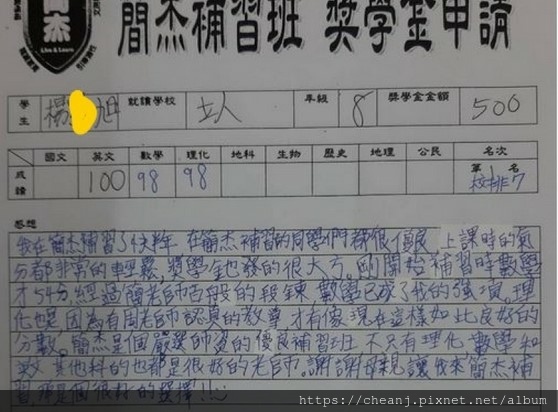 簡杰
Live & Learn
簡杰補習班 獎學金申請
學生 楊 旭 就讀學校 立人 年級 8 獎學金金額 500
國文 英文 數學 理化 地科 生物 歷史 地理 公民 名次
成績 100 98 98 第 名 校排7
感想
我在簡杰補習了快 年 在簡杰補習的同學們都很優良 上課時的氣
分都非常的輕鬆,獎學金也發的很大方。剛開始補習時數學
才54分,經過簡老師百般的段鍊 數學已成了我的強項。理
化也是,因為有周老師認真的教導,才有像現在這樣如此良好的
分數。簡杰是個嚴選師資的優良補習班 不只有理化 數學和
英文 其他科的也都是很好的老師。謝謝母親讓我來簡杰補
習,那是個很好的選擇!!
https://cheanj.pixnet.net/album